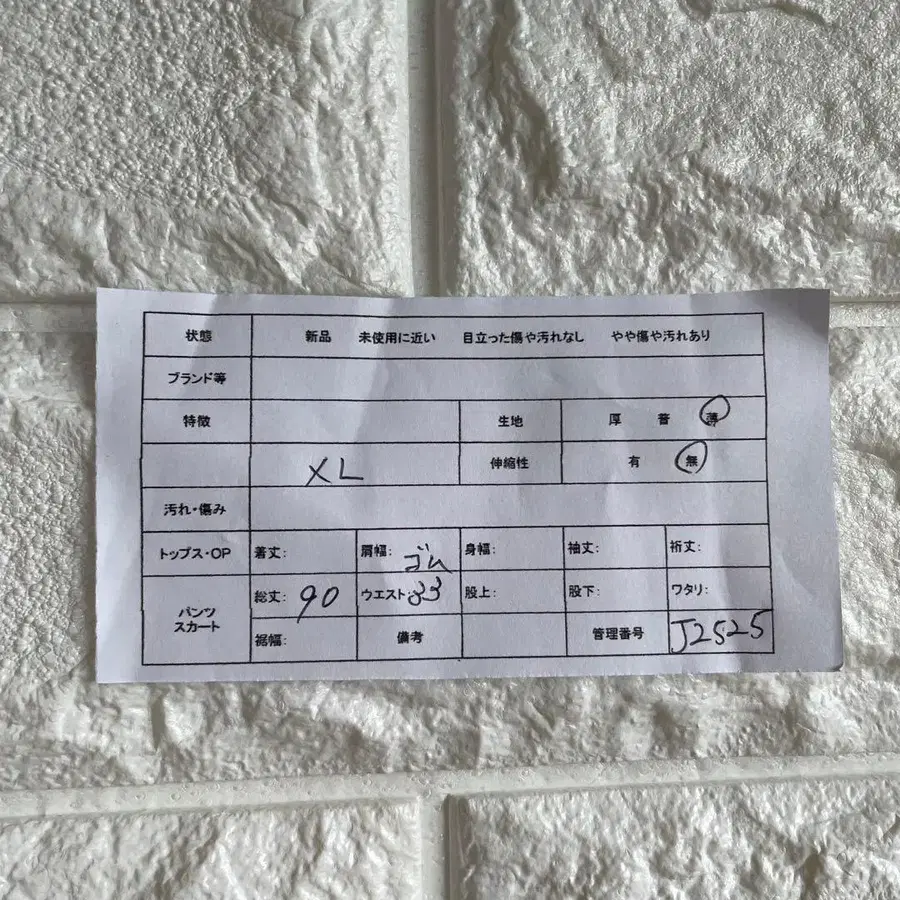 状態 新品 未使用に近い 目立った傷や汚れなし やや傷や汚れあり
ブランド等
特徴 生地 厚 普 薄
XL 伸縮性 有 無
汚れ・傷み
トップス・OP 着丈: 肩幅: ゴム 身幅: 袖丈: 裄丈:
パンツ スカート 総丈: 90 ウエスト: 33 股上: 股下: ワタリ:
裾幅: 備考 管理番号 J2525